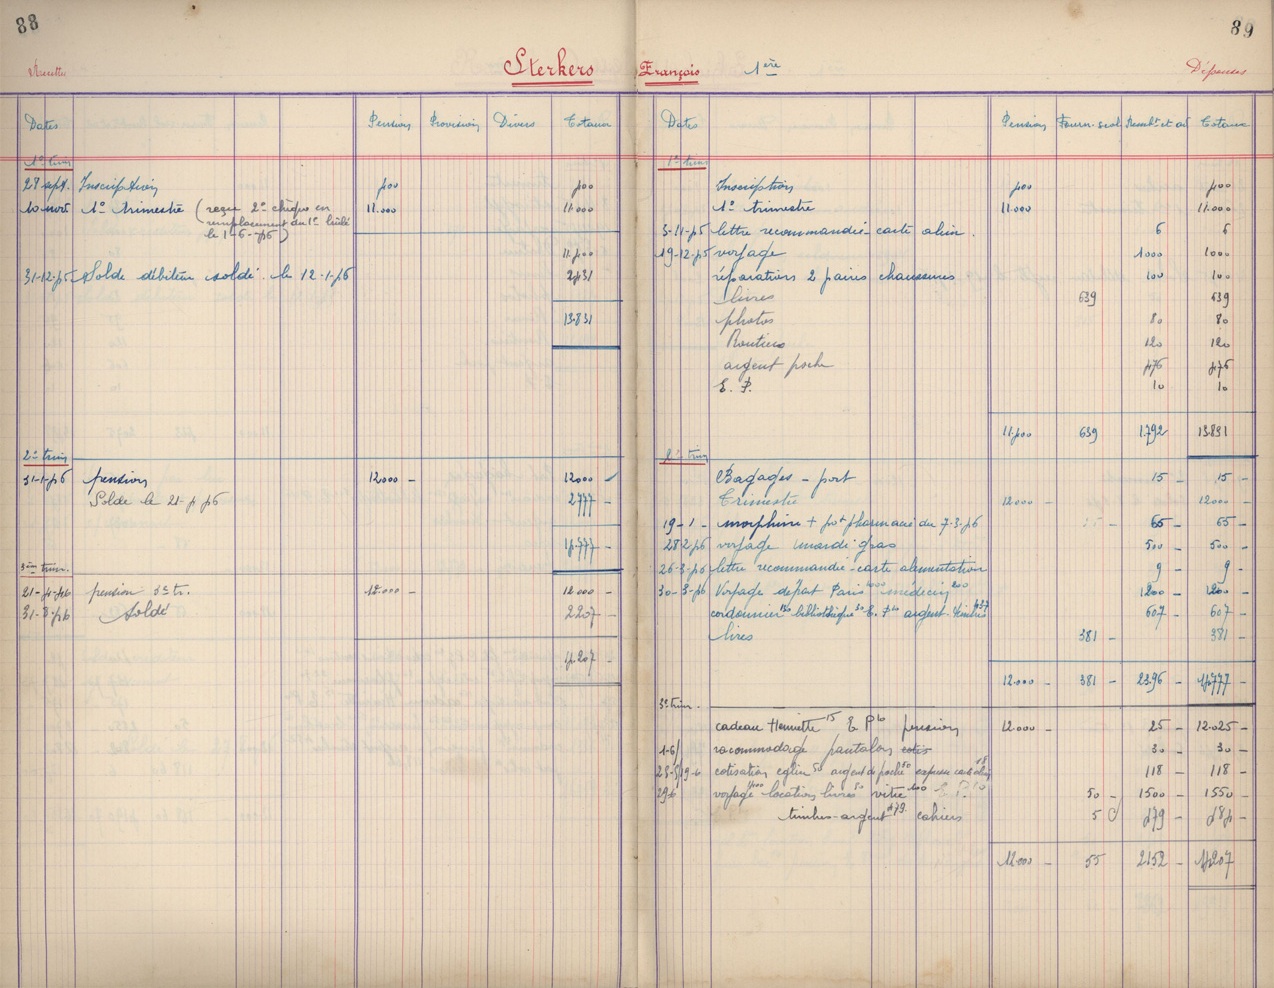 88
89
Recettes
Sterkers
François 1ère
Dépenses
Dates Pension Provision Divers Totaux
1er trim
28 sept. Inscription 500 500
10 nov. 1er trimestre (reçu 2e chèque en 11.000 11.000
remplacement du 1er
le 1-6-56)
11.500
31-12-55 Solde débiteur soldé le 12-1-56 2431
13.931
2e trim
31-1-56 pension 12000 - 12000
Solde le 21-4-56 2777 -
14.777 -
3ème trim.
21-4-56 pension 3e tr. 12.000 - 12.000 -
31-8-56 Solde 2207 -
14.207 -
Dates Pension Fourn. scol Totaux
1er trim
Inscription 500 500
1er trimestre 11.000 11.000
3-11-55 lettre recommandée carte alim. 6 6
19-12-55 voyage 1000 1000
réparations 2 paires chaussures 100 100
livres 639 639
photos 80 80
Routiers 120 120
argent poche 476 476
E. P. 10 10
11.500 639 1.792 13.931
2e trim
Bagages - port 15 - 15 -
Trimestre 12.000 - 12000 -
19-1- morphine + pharmacie du 7-3-56 65 - 65 -
28-2-56 voyage mardi gras 500 - 500 -
26-3-56 lettre recommandée - carte alimentation 9 - 9 -
30-3-56 Voyage départ Paris 1000 médecin 200 1200 - 1200 -
cordonnier 120 bibliothèque 50 E. P. argent timbres 437 607 - 607 -
livres 381 - 381 -
12.000 - 381 - 2396 - 14777 -
3e trim.
cadeau Henriette 15 E P 10 pension 12.000 - 25 - 12.025 -
1-6 raccommodage pantalon 30 - 30 -
cotisation église 50 argent de poche 50 118 - 118 -
29-6 voyage location livres 50 vitre 100 50 - 1500 - 1550 -
timbres-argent 479. cahiers 5 479 - 484 -
12000 - 55 2152 - 14207